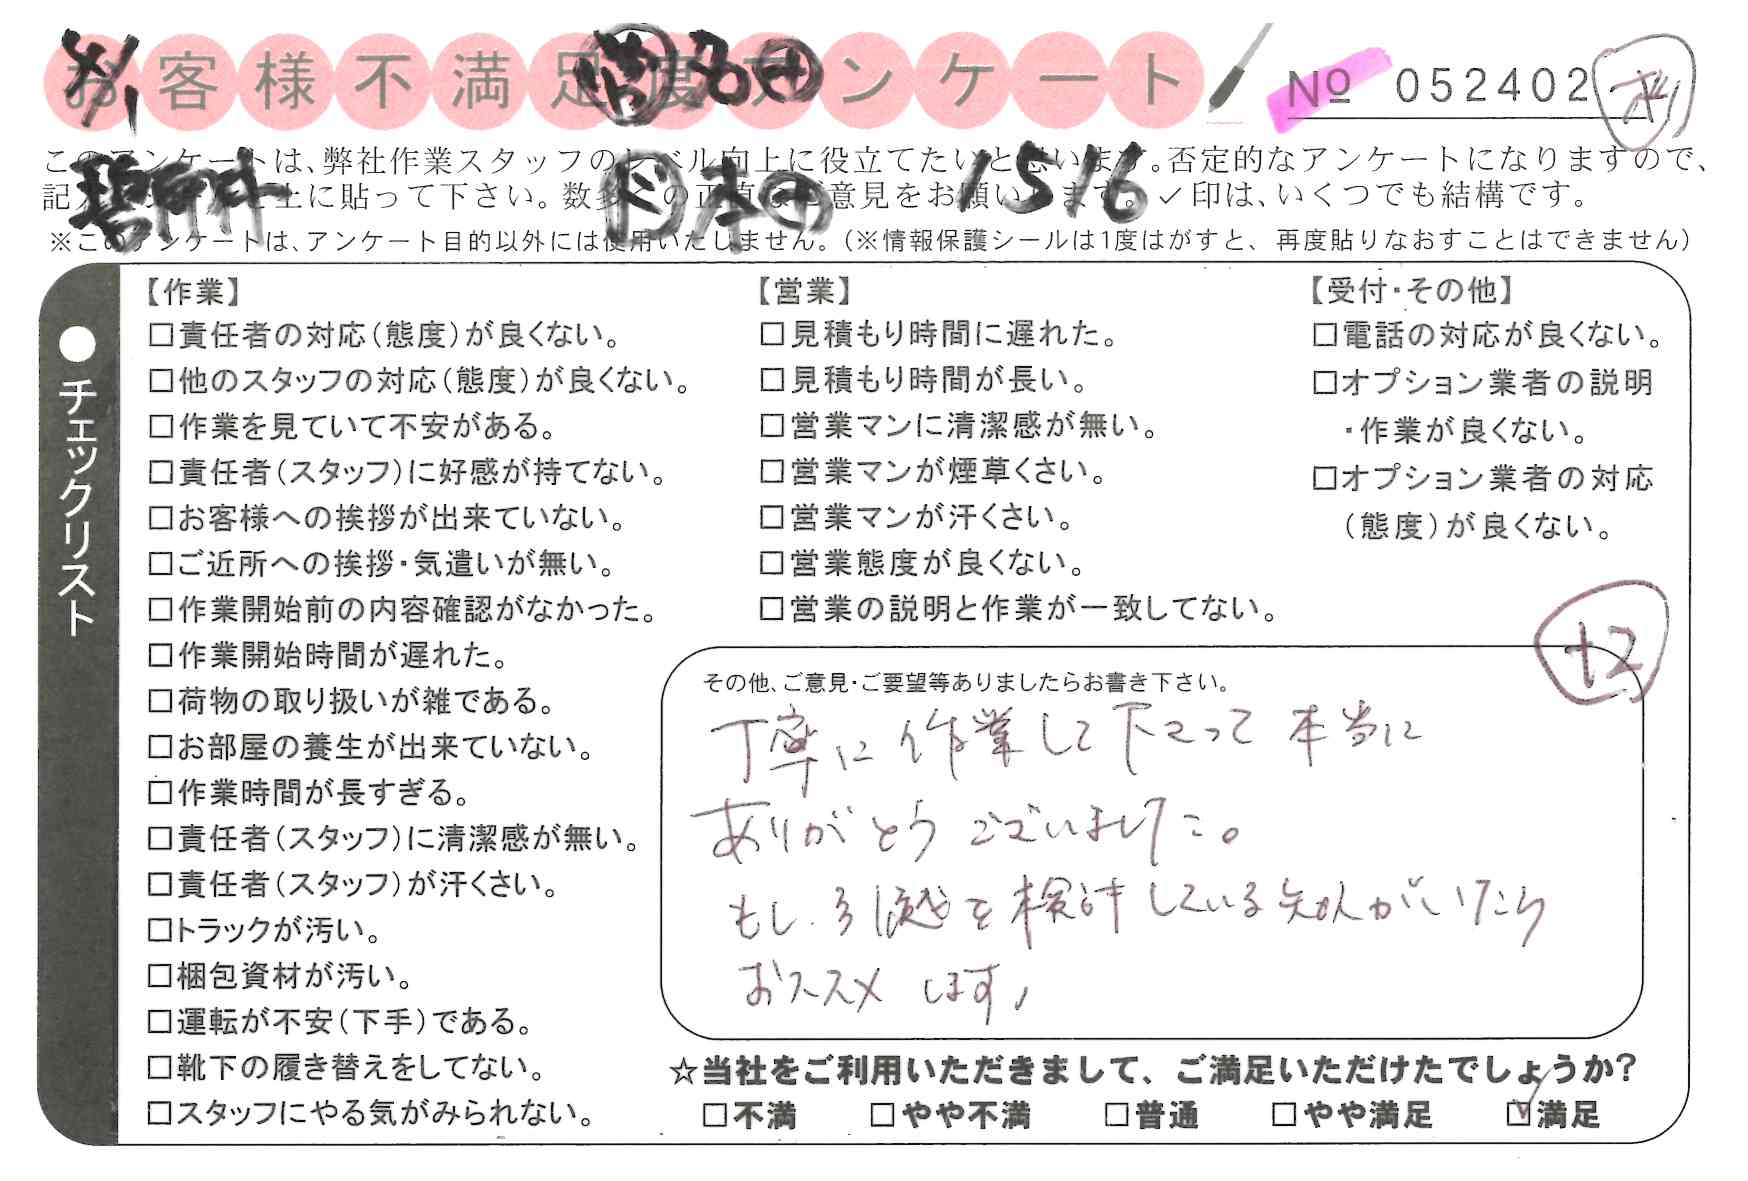 お客様不満足度アンケート
No 052402
4/1
碧南市
1516
このアンケートは、弊社作業スタッフのレベル向上に役立てたいと思います。否定的なアンケートになりますので、
に貼って下さい。数多くの正直なご意見をお願いします。✓印は、いくつでも結構です。
※このアンケートは、アンケート目的以外には使用いたしません。(※情報保護シールは1度はがすと、再度貼りなおすことはできません)
●チェックリスト
【作業】
□責任者の対応(態度)が良くない。
□他のスタッフの対応(態度)が良くない。
□作業を見ていて不安がある。
□責任者(スタッフ)に好感が持てない。
□お客様への挨拶が出来ていない。
□ご近所への挨拶・気遣いが無い。
□作業開始前の内容確認がなかった。
□作業開始時間が遅れた。
□荷物の取り扱いが雑である。
□お部屋の養生が出来ていない。
□作業時間が長すぎる。
□責任者(スタッフ)に清潔感が無い。
□責任者(スタッフ)が汗くさい。
□トラックが汚い。
□梱包資材が汚い。
□運転が不安(下手)である。
□靴下の履き替えをしてない。
□スタッフにやる気がみられない。
【営業】
□見積もり時間に遅れた。
□見積もり時間が長い。
□営業マンに清潔感が無い。
□営業マンが煙草くさい。
□営業マンが汗くさい。
□営業態度が良くない。
□営業の説明と作業が一致してない。
【受付・その他】
□電話の対応が良くない。
□オプション業者の説明
・作業が良くない。
□オプション業者の対応
(態度)が良くない。
+2
その他、ご意見・ご要望等ありましたらお書き下さい。
丁寧に作業して下さって本当に
ありがとうございました。
もし、引越を検討している知人がいたら
おススメします、
☆当社をご利用いただきまして、ご満足いただけたでしょうか?
□不満 □やや不満 □普通 □やや満足 ☑満足